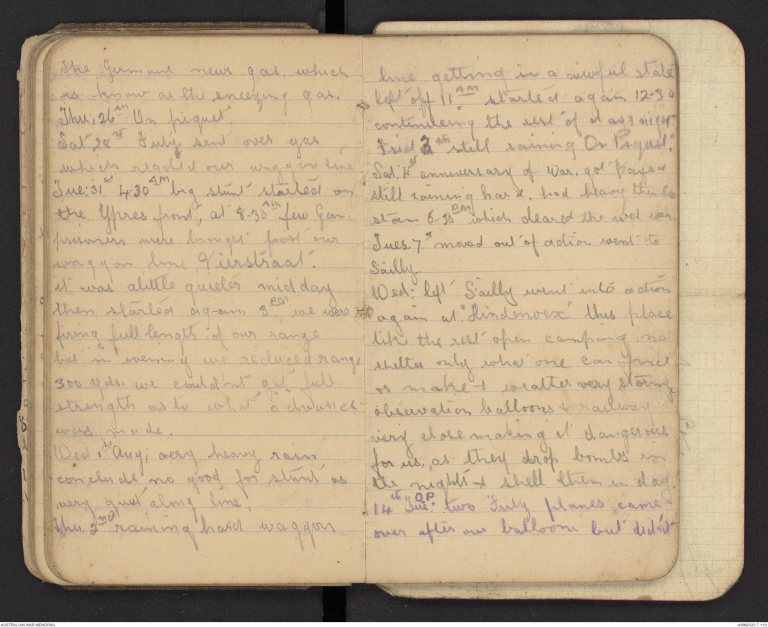 The Germans new gas, which
is know as the sneezing gas.
Thu, 26th On piquet
Sat 28th Fritz sent over gas
which reach'd our waggon line
Tue, 31st 4.30 AM big stunt started on
the Ypres front, at 8.30 AM few Ger.
prisoners were brought past our
waggon line Vierstraat.
it was alittle quieter midday
then started again 3 PM we were
firing full length of our range
but in evening we reduced range
300 yds. we couldn't get full
strength as to what advance
was made.
Wed 1st Aug, very heavy rain
conclude no good for stunt as
very quiet along line.
Thu, 2nd raining hard waggon
line getting in a awful state
left off 11 AM started again 12-30
continueing the rest of day & night
Frid 3rd still raining On Piquet.
Sat. 4th anniversary of War, got paya
still raining hard, had heavy
storm 5-30 PM which cleared the wet
Tues 7th moved out of action went to
Sailly
Wed: left Sailly went into action
again at "Kindenoex" this place
like the rest open camping no
shelter only what one can find
or make & weather very stormy
observation balloons & railway
very close making it dangerous
for us, as they drop bombs in
the night & shell them in day.
14th Tue: O.P two Fritz planes came
over after our balloon but didn't
AUSTRALIAN WAR MEMORIAL